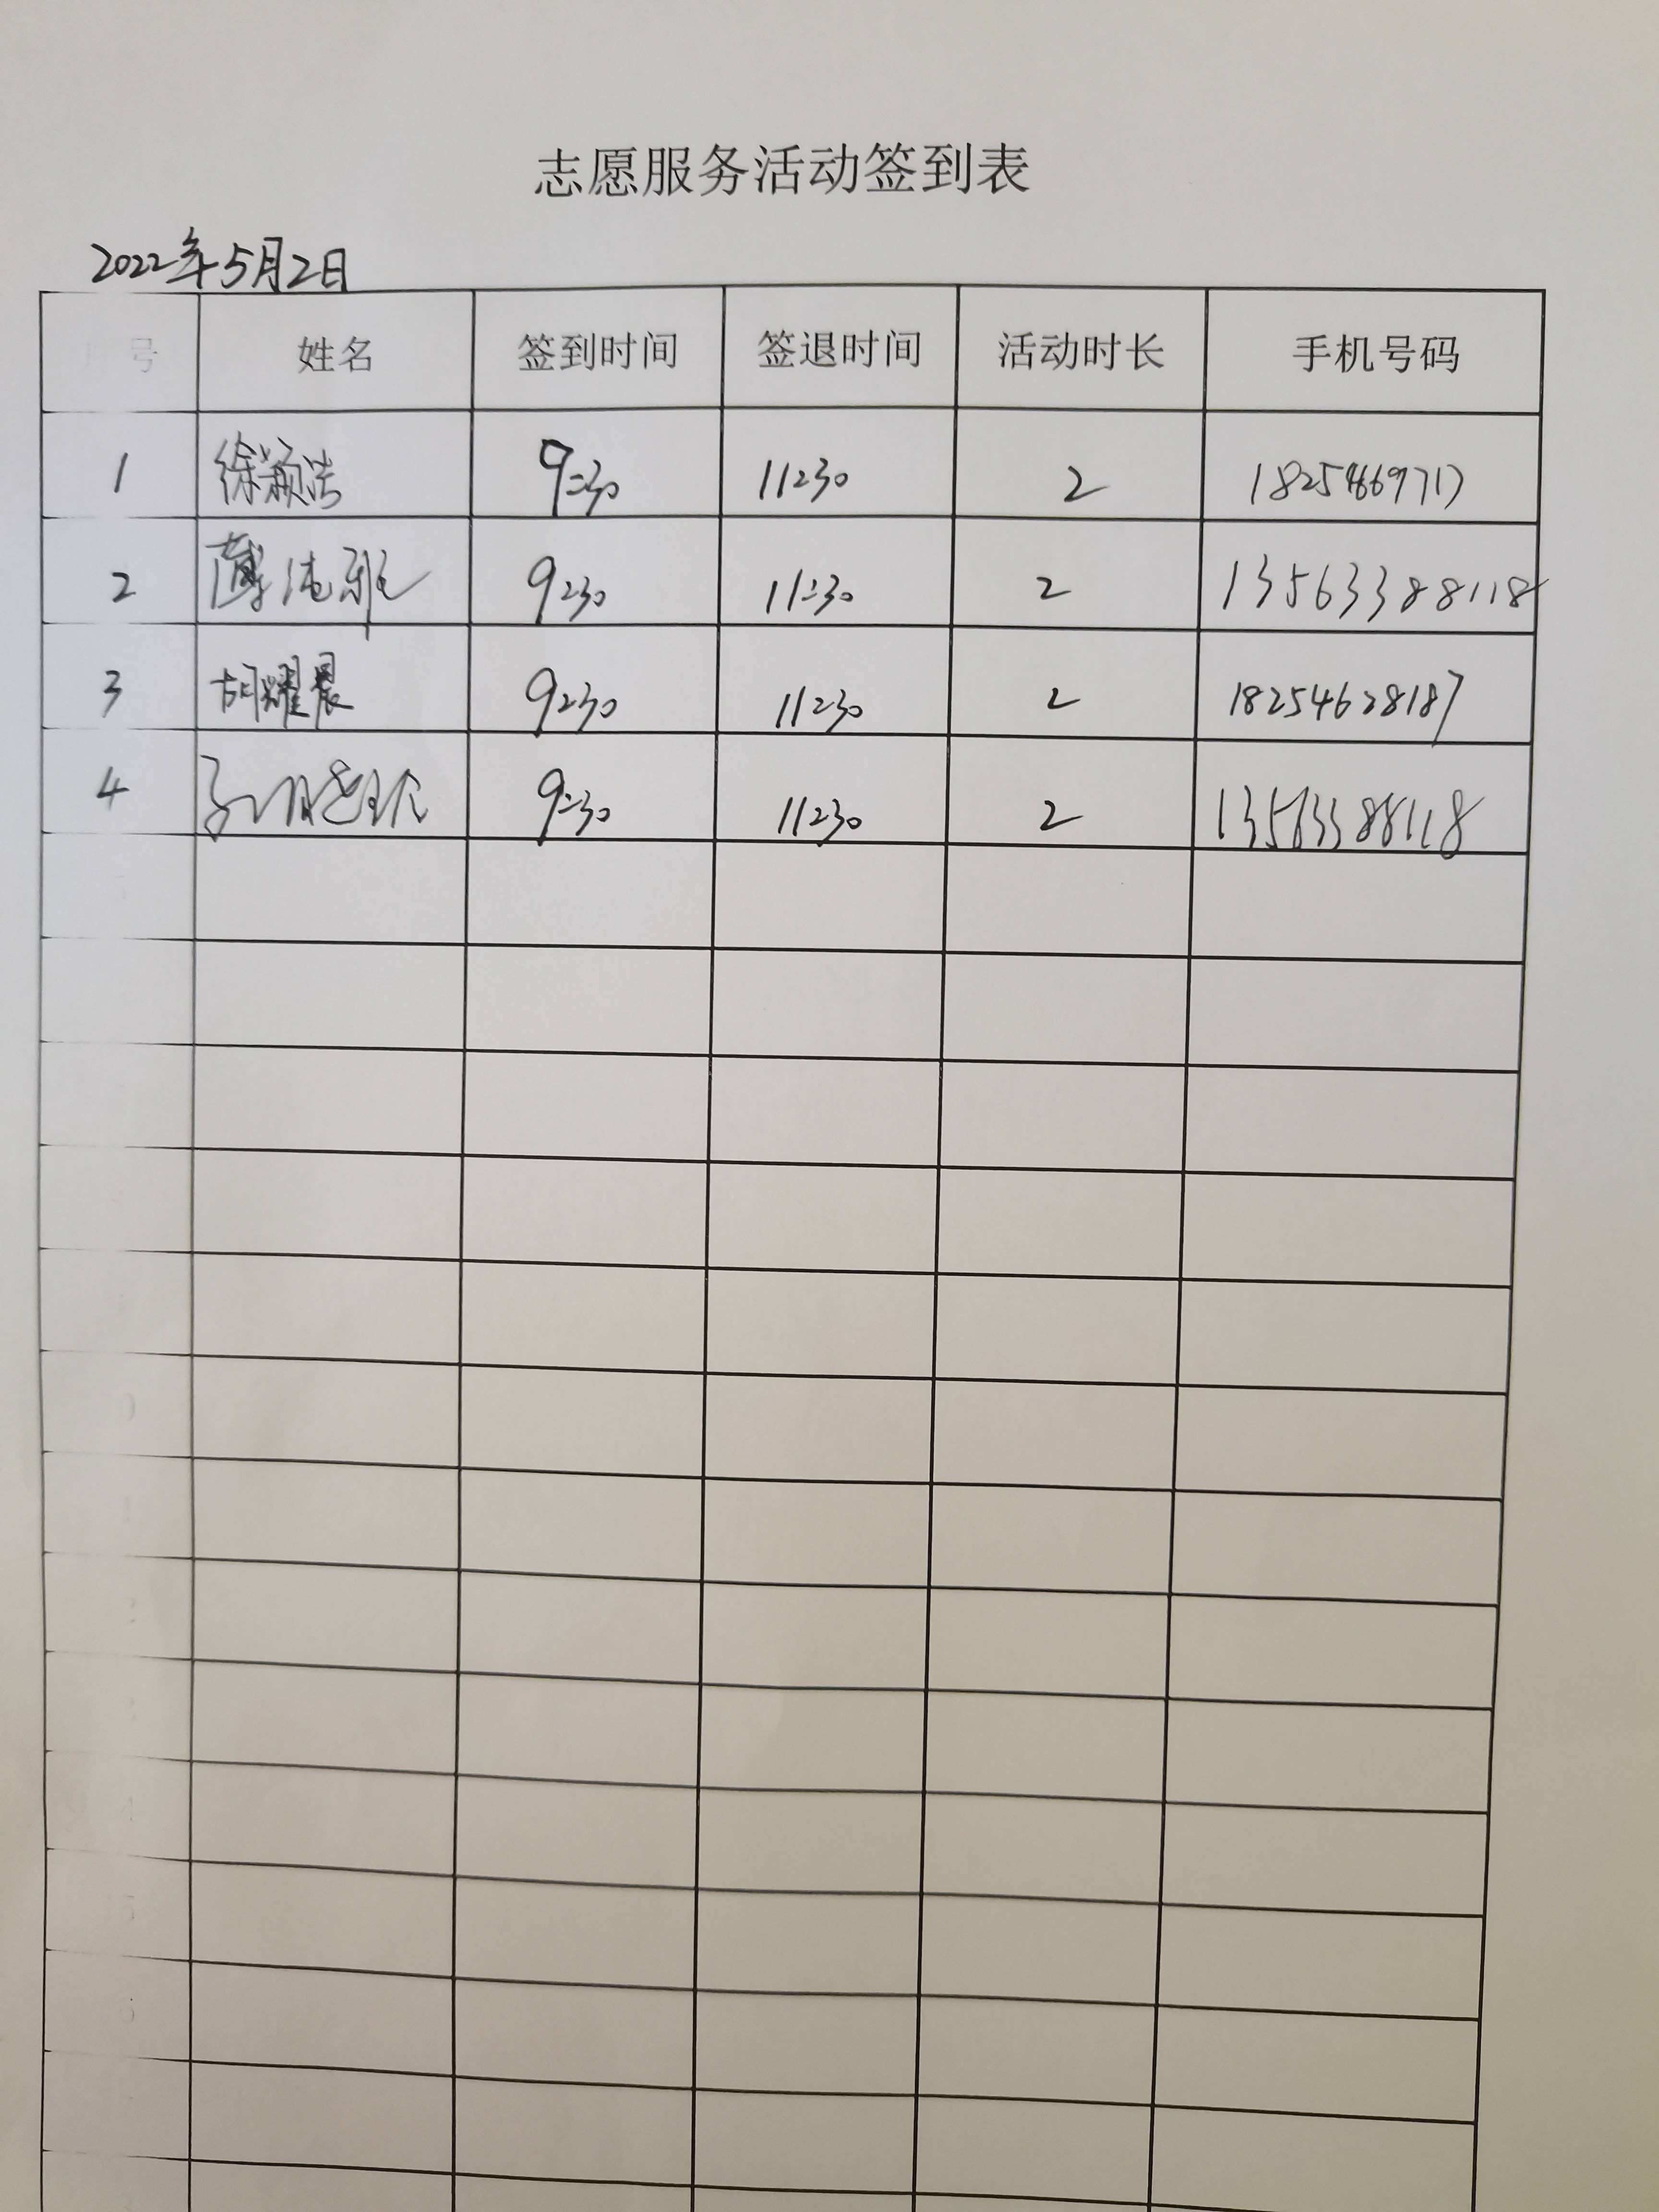 志愿服务活动签到表
2022年5月2日
号 姓名 签到时间 签退时间 活动时长 手机号码
1 徐颖浩 9:30 11:30 2
2 9:30 11:30 2 13563388118
3 胡耀晨 9:30 11:30 2 18254628187
4 9:30 11:30 2 13563388118